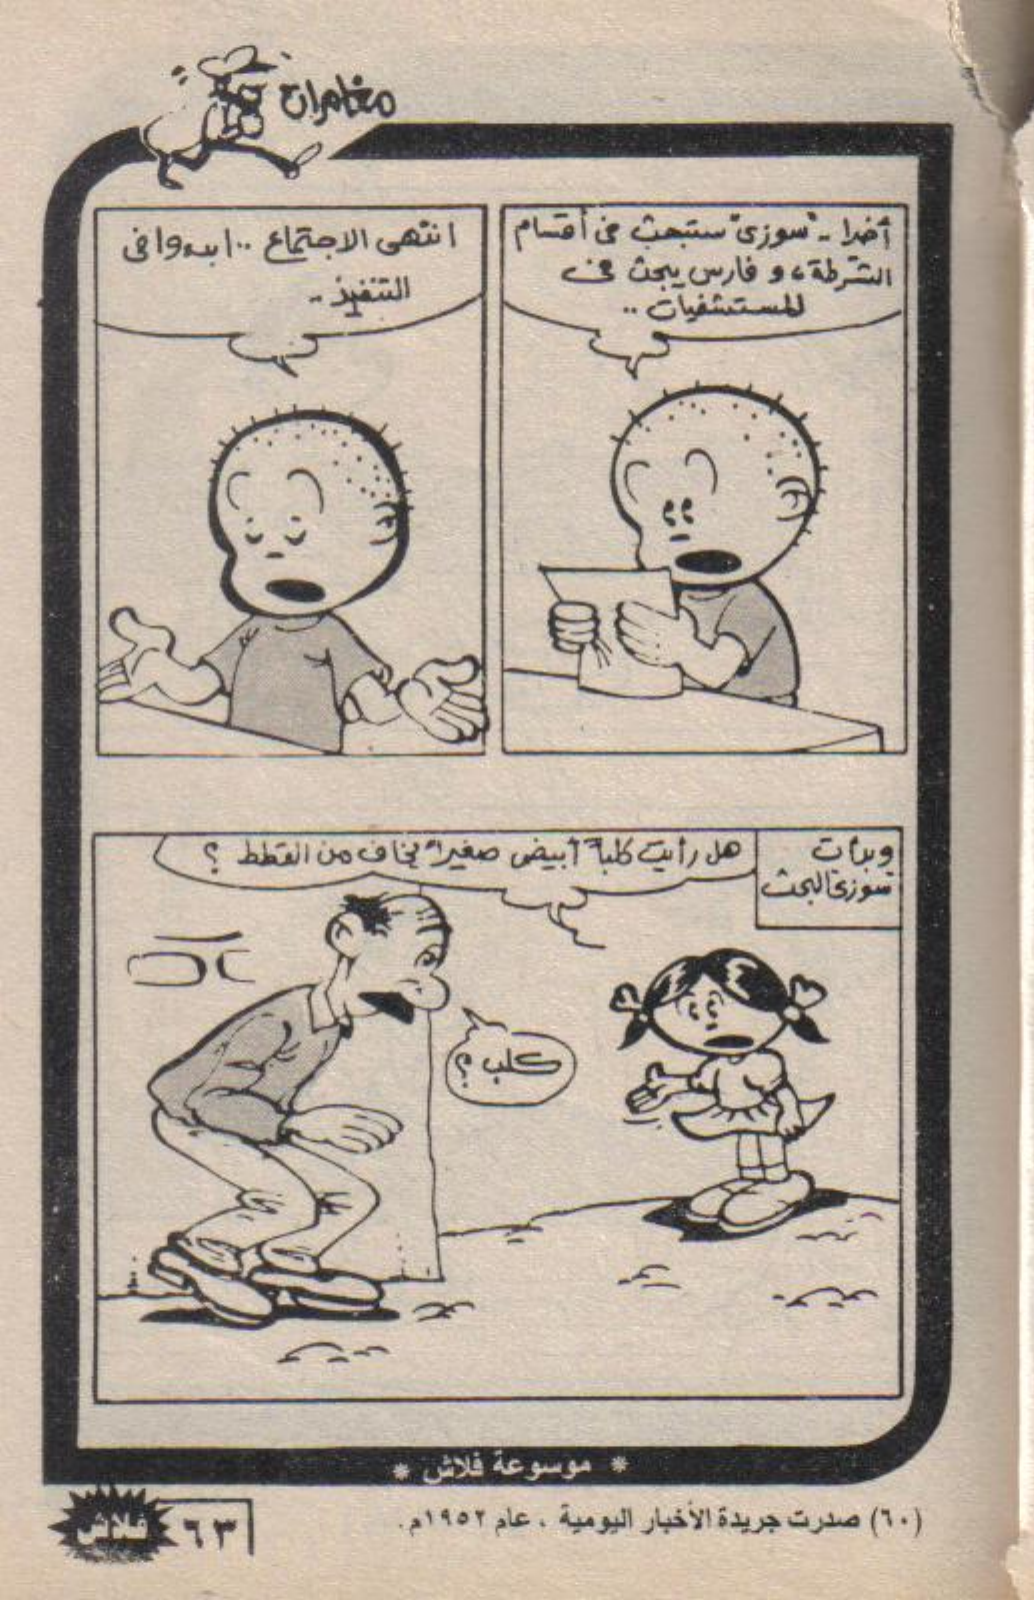 مغامرات
أخيرا .. "سوزى" ستبحث فى أقسام
الشرطة، و فارس يبحث فى
المستشفيات ..
انتهى الاجتماع .. ابدءوا فى
التنفيذ ..
وبدأت
سوزى البحث
هل رأيت كلباً أبيض صغيراً يخاف من القطط ؟
كلب ؟
* موسوعة فلاش *
(٦٠) صدرت جريدة الأخبار اليومية ، عام ١٩٥٢م.
٦٣
فلاش